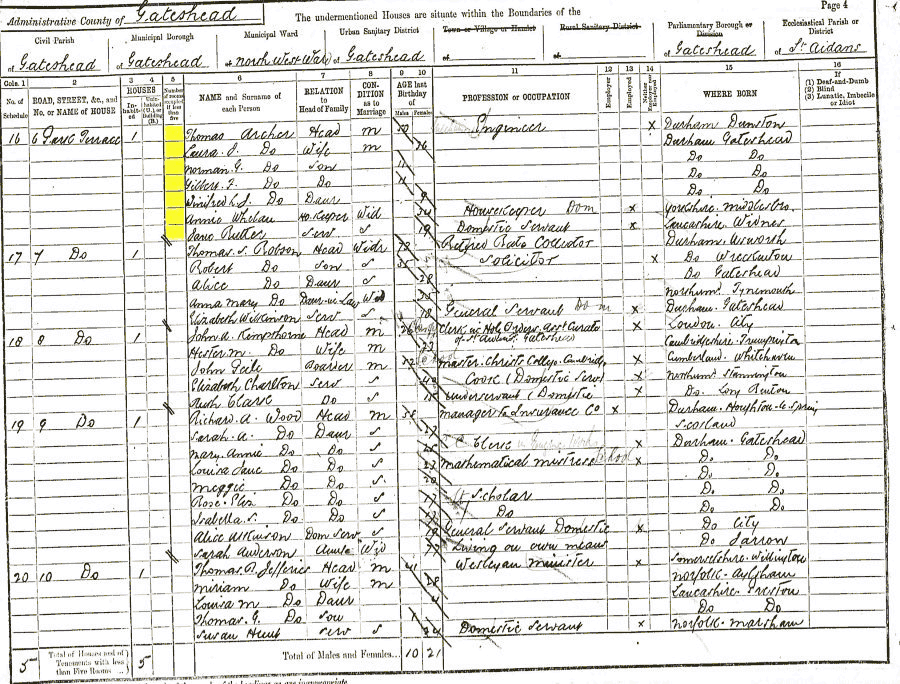 Administrative County of Gateshead
The undermentioned Houses are situate within the Boundaries of the
Page 4
Civil Parish
of Gateshead
Municipal Borough
of Gateshead
Municipal Ward
of North West Ward
Urban Sanitary District
of Gateshead
Town or Village or Hamlet
of
Rural Sanitary District
of
Parliamentary Borough or Division
of Gateshead
Ecclesiastical Parish or District
of St Aidans
Cols. 1 2 3 4 5 6 7 8 9 10 11 12 13 14 15 16
No. of Schedule
ROAD, STREET, &c., and No. or NAME of HOUSE
HOUSES
Inhabited
Uninhabited (U.), or Building (B.)
Number of rooms occupied if less than five
NAME and Surname of each Person
RELATION to Head of Family
CONDITION as to Marriage
AGE last Birthday of
Males Females
PROFESSION or OCCUPATION
Employer
Employed
Neither
WHERE BORN
If
(1) Deaf-and-Dumb
(2) Blind
(3) Lunatic, Imbecile or Idiot
16 6 Park Terrace 1 Thomas Archer Head M Engineer x Durham Dunston
Laura J. Do Wife M Durham Gateshead
Norman G. Do Son 11 Do Do
Gilbert Do Do Do Do
Winifred L. J. Do Daur 9 Do Do
Annie Whelan Ho. Keeper Wid Housekeeper Dom x Yorkshire Middlesbro
Jane Rutter Serv S 19 Domestic Servant x Lancashire Widnes
17 7 Do 1 Thomas S. Robson Head Widr 78 Retired Rate Collector Durham Usworth
Robert Do Son S 35 Solicitor x Do Wreckenton
Alice Do Daur S 28 Do Gateshead
Anna Mary Do Daur-in-Law Wid Northum. Tynemouth
Elizabeth Wilkinson Serv S General Servant Dom x Durham. Gateshead
18 8 Do 1 John A. Kempthorne Head M 26 Clerk in Holy Orders, Asst Curate of St Aidans, Gateshead x London. City
Hester M. Do Wife M 23 Cambridgeshire. Trumpington
John Peile Boarder M 52 Master. Christs College. Cambridge x Cumberland Whitehaven
Elizabeth Charlton Serv S 40 Cook (Domestic Serv) x Northum Stannington
Ruth Clark Do S Underservant (Domestic x Do. Long Benton
19 9 Do 1 Richard A. Wood Head M 58 Manager to Insurance Co x Durham. Houghton-le-Spring
Sarah A. Do Daur S 27 Scotland
Mary Annie Do Do S Clerk x Durham. Gateshead
Louisa Jane Do Do S 23 Mathematical Mistress School x Do. Do.
Meggie Do Do S 20 Do. Do.
Rose Eliz Do Do S 17 Scholar Do. Do.
Isabella S. Do Do S Do Do. Do.
Alice Atkinson Dom Serv S General Servant Domestic x Do City
Sarah Anderson Aunt Wid Living on own means Do Jarrow
20 10 Do 1 Thomas R. Jefferies Head M 41 Wesleyan Minister x Somersetshire. Willington
Miriam Do Wife M 38 Norfolk. Aylsham
Louisa M Do Daur 4 Lancashire. Preston
Thomas G. Do Son Do Do
Susan Hunt Serv S 24 Domestic Servant x Norfolk. Marsham
5 Total of Houses and of Tenements with less than Five Rooms 5
Total of Males and Females... 10 21